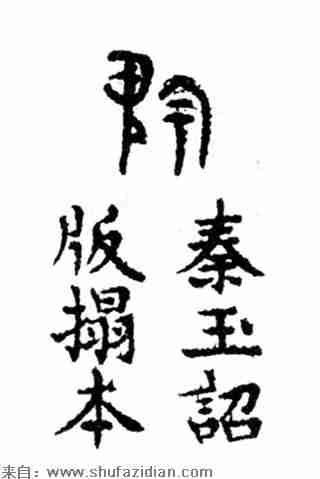 秦玉詔
版搨本
来自：www.shufazidian.com